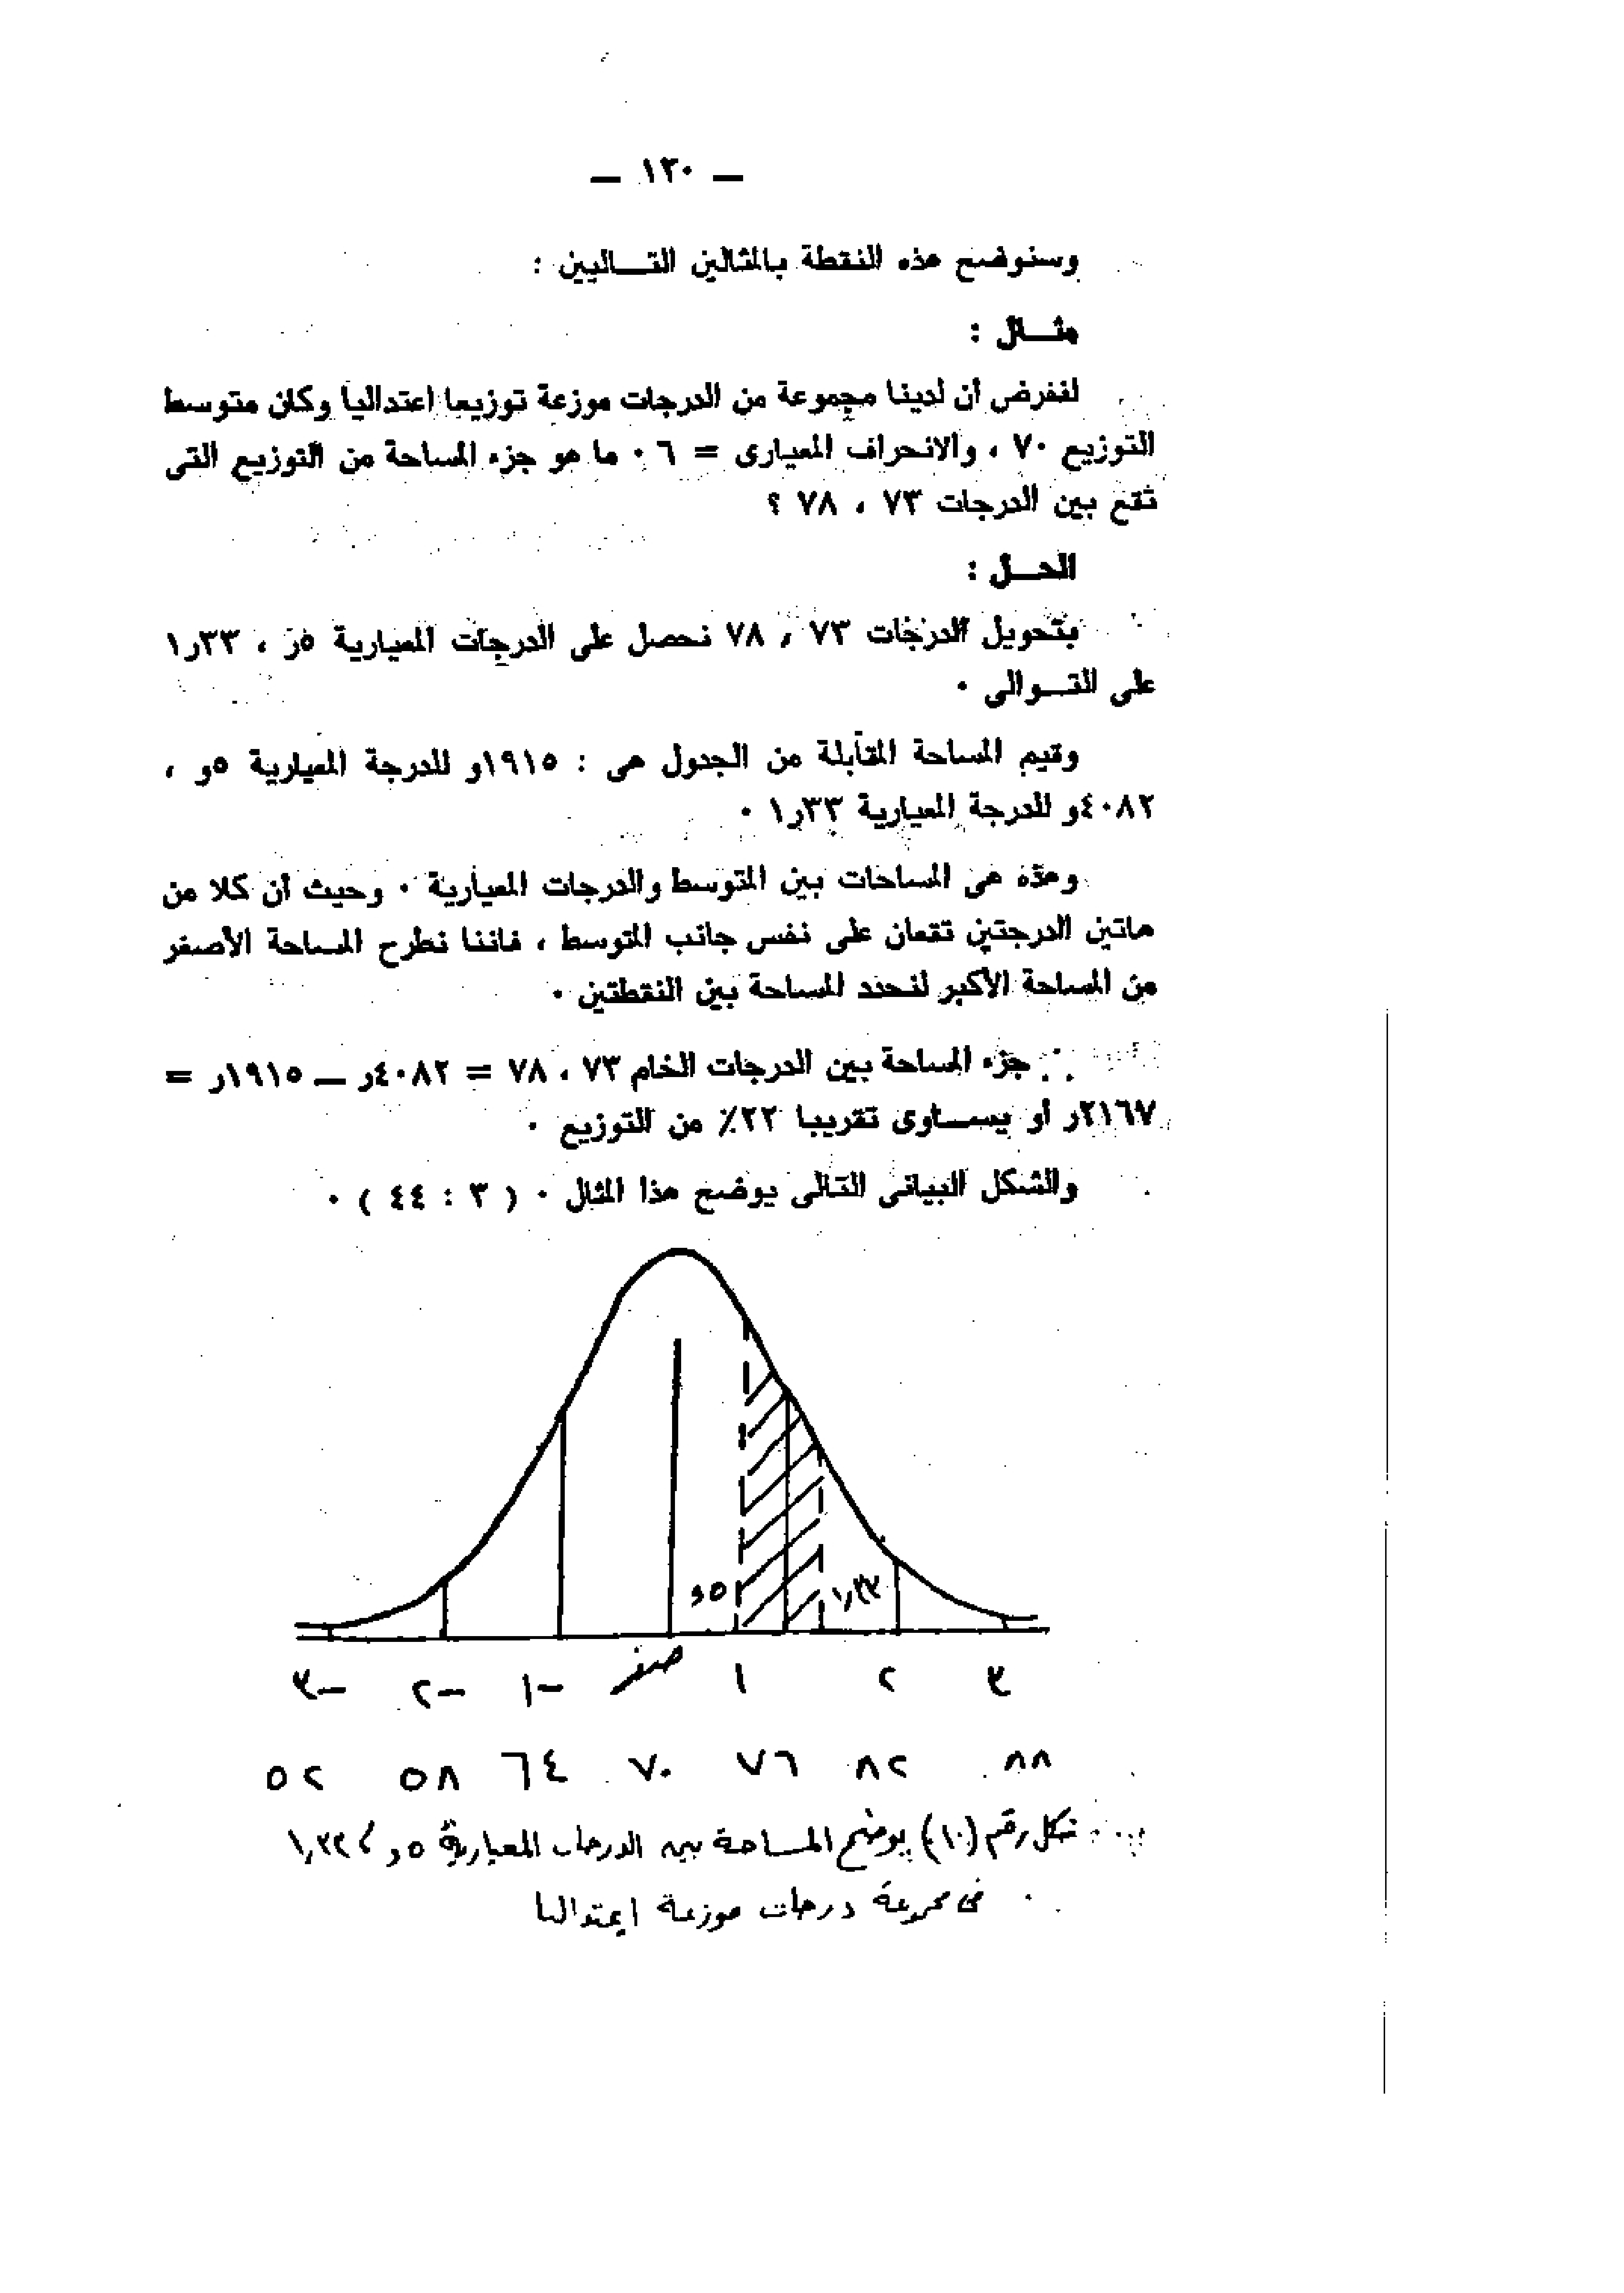 — ١٣٠ —
وسنوضح هذه النقطة بالمثالين التـــاليين :
مثـــال :
لنفرض أن لدينا مجموعة من الدرجات موزعة توزيعا اعتداليا وكان متوسط
التوزيع ٧٠ ، والانحراف المعيارى = ٦ ٠ ما هو جزء المساحة من التوزيع التى
تقع بين الدرجات ٧٣ ، ٧٨ ؟
الحـــل :
بتحويل الدرجات ٧٣ ، ٧٨ نحصل على الدرجات المعيارية ٥ر ، ٣٣ر١
على التـــوالى ٠
وقيم المساحة المقابلة من الجدول هى : ١٩١٥و للدرجة المعيارية ٥و ،
٤٠٨٢و للدرجة المعيارية ٣٣ر١ ٠
وهذه هى المساحات بين المتوسط والدرجات المعيارية ٠ وحيث أن كلا من
هاتين الدرجتين تقعان على نفس جانب المتوسط ، فاننا نطرح المساحة الأصغر
من المساحة الأكبر لنحدد المساحة بين النقطتين ٠
∴ جزء المساحة بين الدرجات الخام ٧٣ ، ٧٨ = ٤٠٨٢ر — ١٩١٥ر =
٢١٦٧ر أو يســـاوى تقريبا ٢٢٪ من التوزيع ٠
والشكل البيانى التالى يوضح هذا المثال ٠ ( ٣ : ٤٤ ) ٠
٥و ١,٣٣
-٣ -٢ -١ صفر ١ ٢ ٣
٥٢ ٥٨ ٦٤ ٧٠ ٧٦ ٨٢ ٨٨
شكل رقم (١٠) يوضح المساحة بين الدرجات المعيارية ٥و ، ١,٣٣
فى مجموعة درجات موزعة إعتداليا